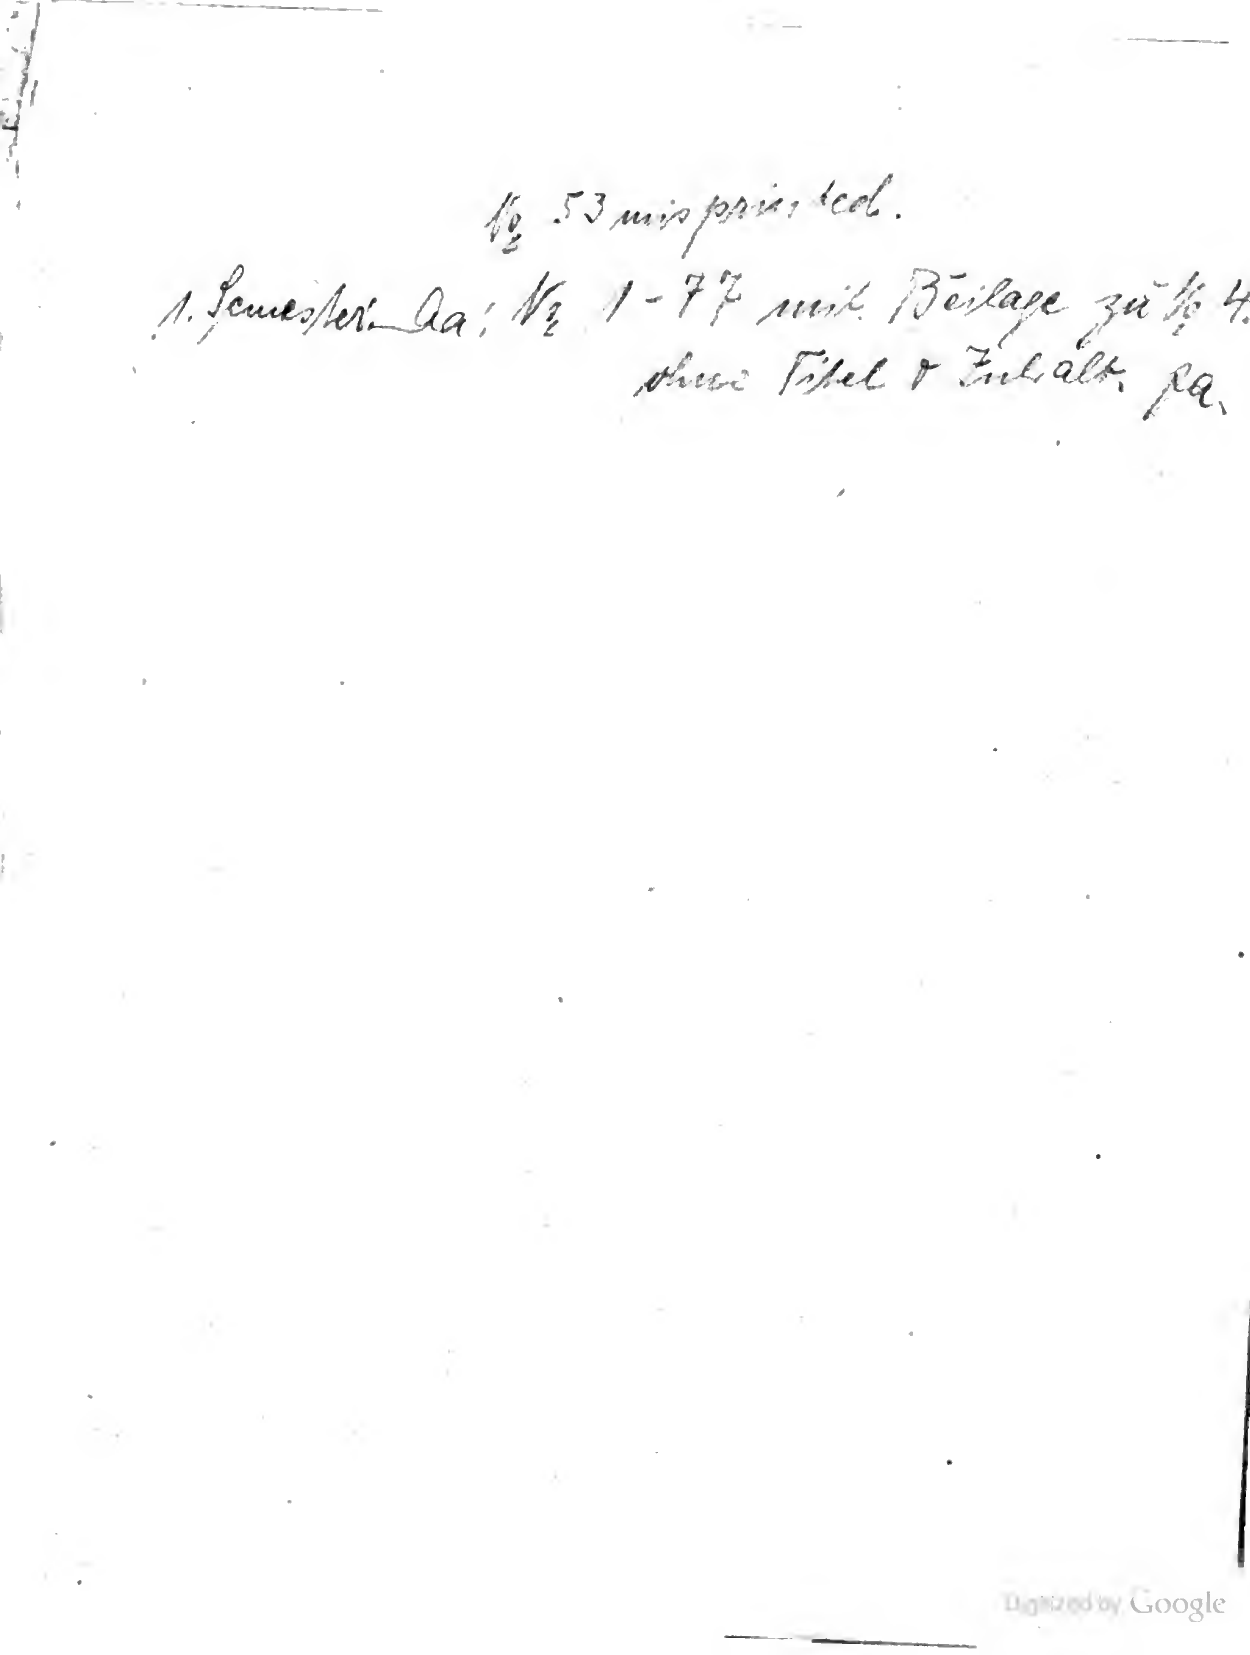 № 53 misprinted.
1. Semester. Aa: № 1-77 mit Beilage zu № 4.
ohne Titel & Inhalt.
Digitized by Google